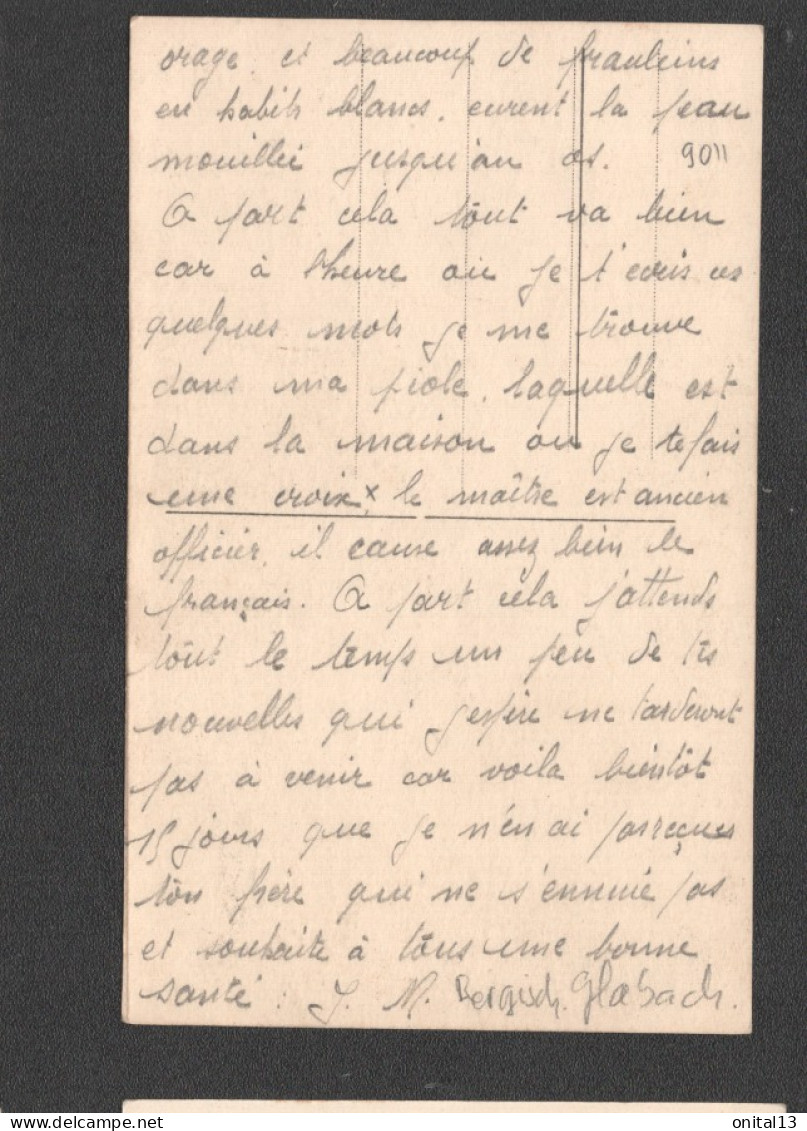 orage et beaucoup de frauleins
en habits blancs, eurent la peau
mouillée jusqu'au os.
9011
A part cela tout va bien
car à l'heure où je t'écris ces
quelques mots je me trouve
dans ma piole, laquelle est
dans la maison ou je te fais
une croix x, le maître est ancien
officier, il cause assez bien le
français. A part cela j'attends
tout le temps un peu de tes
nouvelles qui j'espère ne tarderont
pas à venir car voila bientôt
15 jours que je n'en ai pas reçues
ton frère qui ne s'ennuie pas
et souhaite à tous une bonne
santé : J. M. Bergisch. Gladbach.
onital13